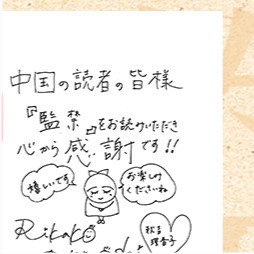 中国の読者の皆様
『監禁』をお読みいただき
心から感謝です!!
嬉しいです
お楽しみ
くださいね
Rikako
秋吉
理香子